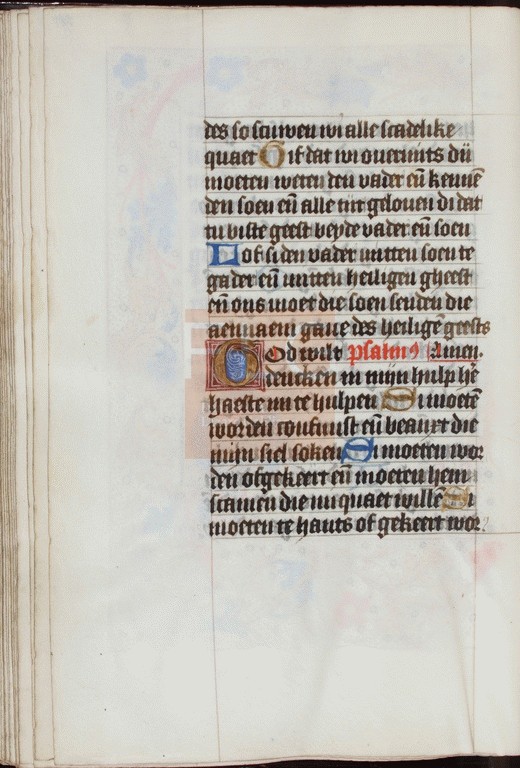 des so scuwen wi alle scadelike
quaet Gif dat wi ouermits dij
moeten weten den vader eñ kennē
den soen eñ alle tijt gelouen di dat
tu biste geest beyde vader eñ soen
Lof si den vader mitten soen te
gader eñ mitten heiligen gheest
eñ ons moet die soen senden die
aennaem gaue des heiligē geests
God wilt psalm⁹ Amen.
dencken in mijn hulp h̄e
haeste mi te hulpen Si moetē
worden confuust eñ beanxt die
mijn siel soken Si moeten wor
den ofgekeert eñ moeten hem
scamen die mi quaet willē Si
moeten te hants of gekeert wor